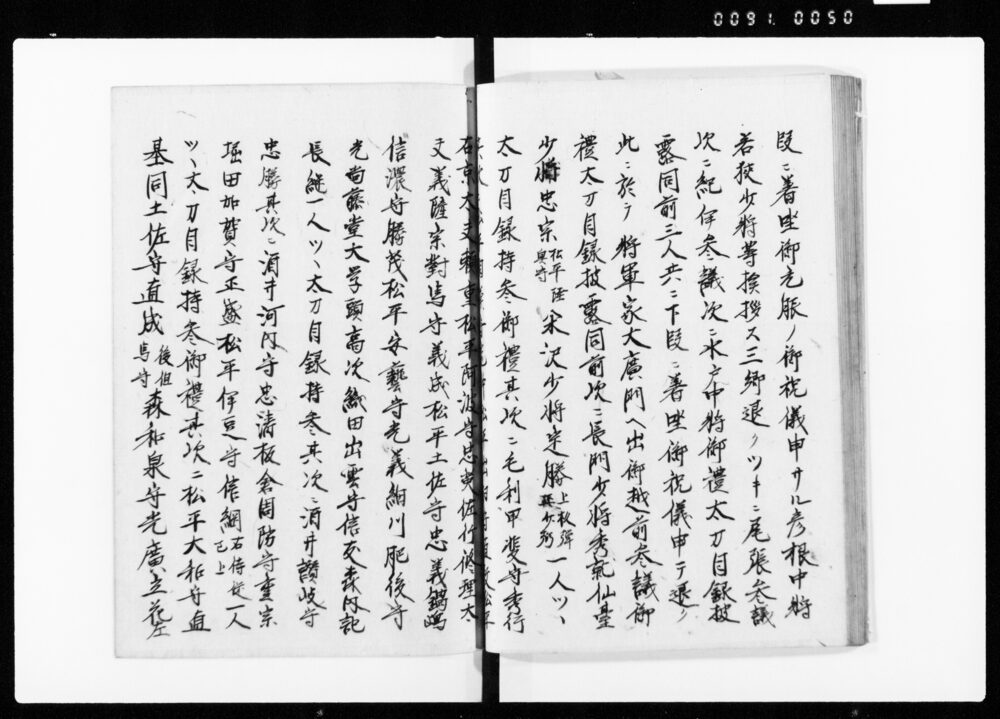 0091.0050
段ニ着坐御元服ノ御祝儀申サル彦根中将
若狭少将等挨拶ス三卿退クツキニ尾張参議
次ニ紀伊参議次ニ水戸中将御禮太刀目録披
露同前三人共ニ下段ニ着坐御祝儀申テ退ク
此ニ於テ将軍家大廣間ヘ出御越前参議御
禮太刀目録披露同前次ニ長門少将秀就仙臺
少将忠宗 松平陸奥守 米沢少将定勝 上杉弾正少弼 一人ツヽ
太刀目録持参御禮其次ニ毛利甲斐守秀行
右京大夫頼重松平阿波守忠 佐竹修理太
夫義隆宗對馬守義成松平土佐守忠義鍋嶋
信濃守勝茂松平安藝守光義細川肥後守
光尚藤堂大学頭高次織田出雲守信友森内記
長継一人ツヽ太刀目録持参其次ニ酒井讃岐守
忠勝其次ニ酒井河内守忠清板倉周防守重宗
堀田加賀守正盛松平伊豆守信綱 右侍従已上 一人
ツヽ太刀目録持参御禮其次ニ松平大和守直
基同土佐守直成 後但馬守 森和泉守光廣立花左